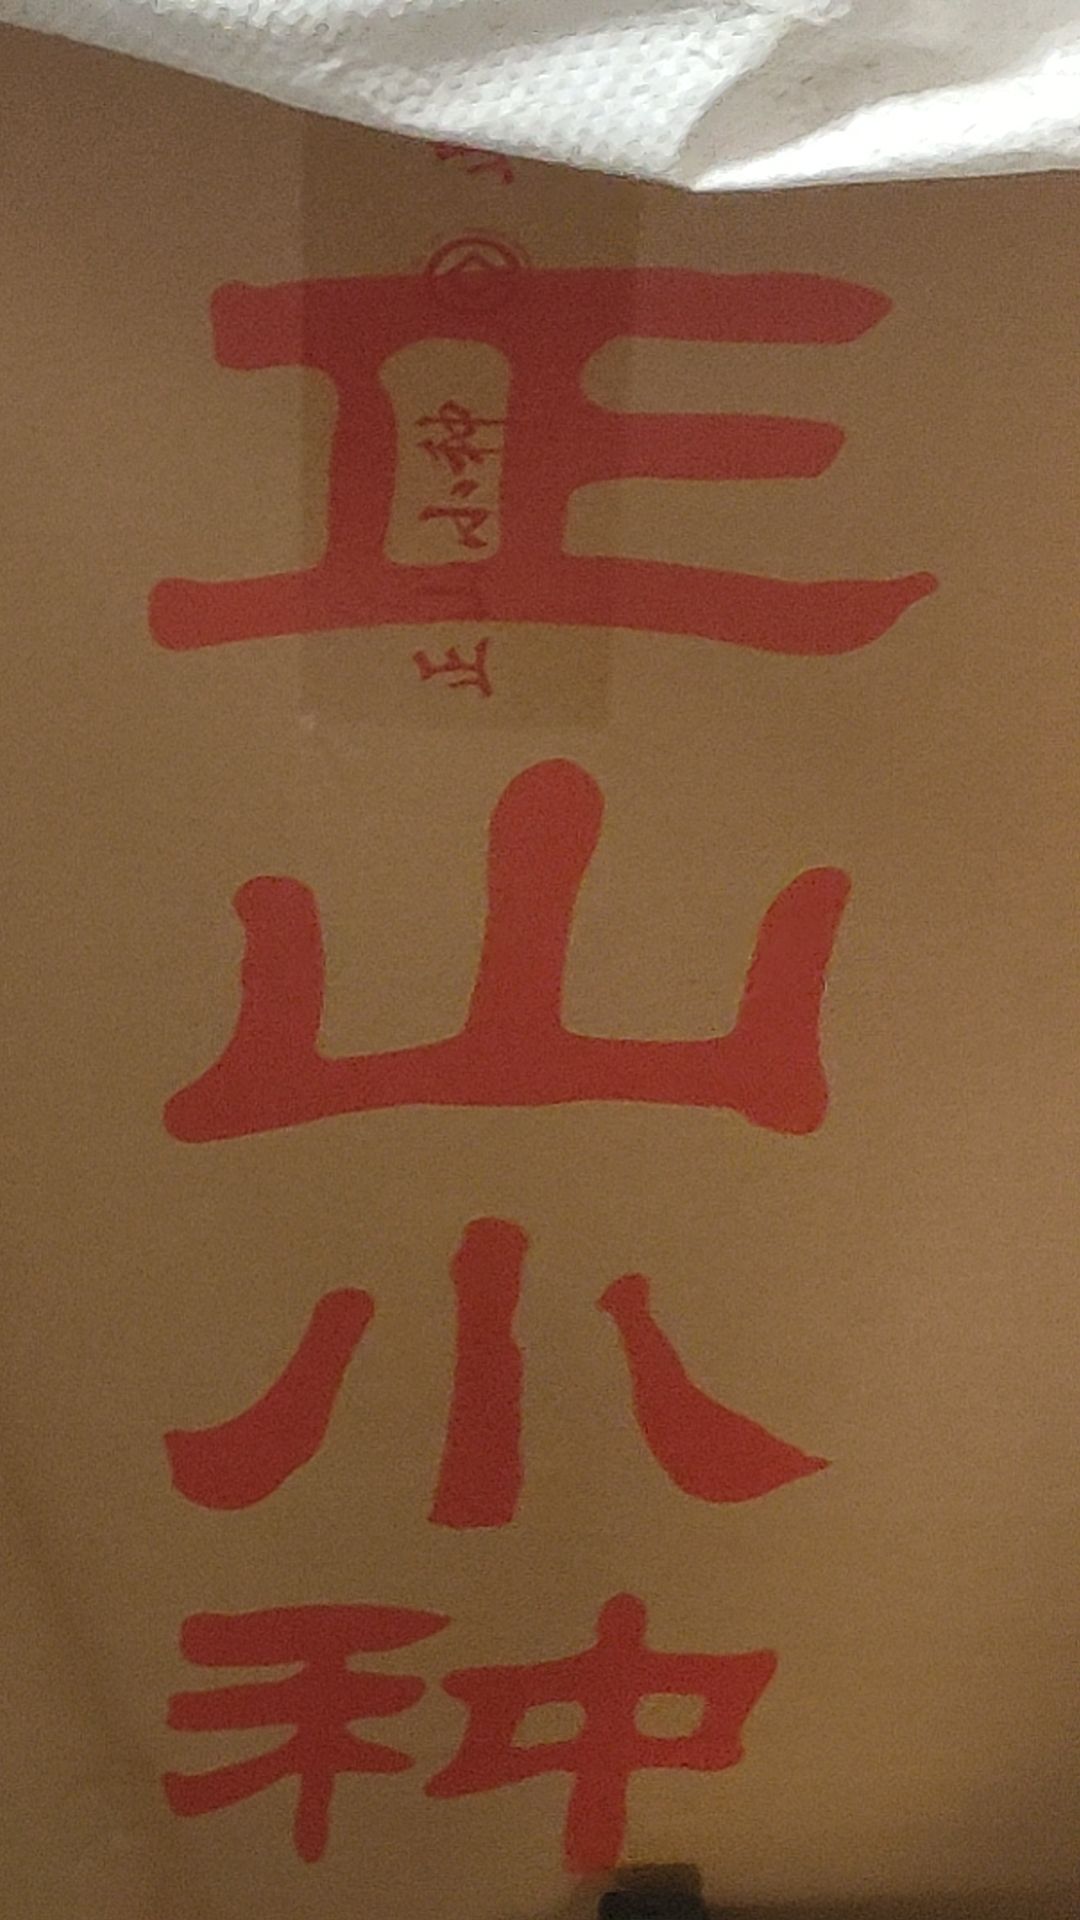 正山小种
正山小种